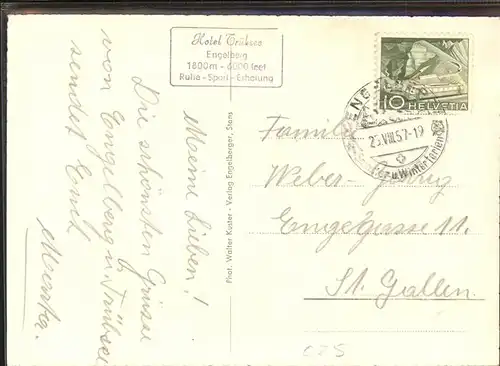 Hotel Trübsee
Engelberg
1800m - 6000 feet
Ruhe - Sport - Erholung
Meine Lieben!
Die schönsten Grüsse
von Engelberg u. Trübsee
sendet Euch
Phot. Walter Küster - Verlag Engelberger, Stans
10 HELVETIA
25.VIII.57-19
u. Winterferien
Familie
Weber-
Engegasse 11.
St. Gallen.